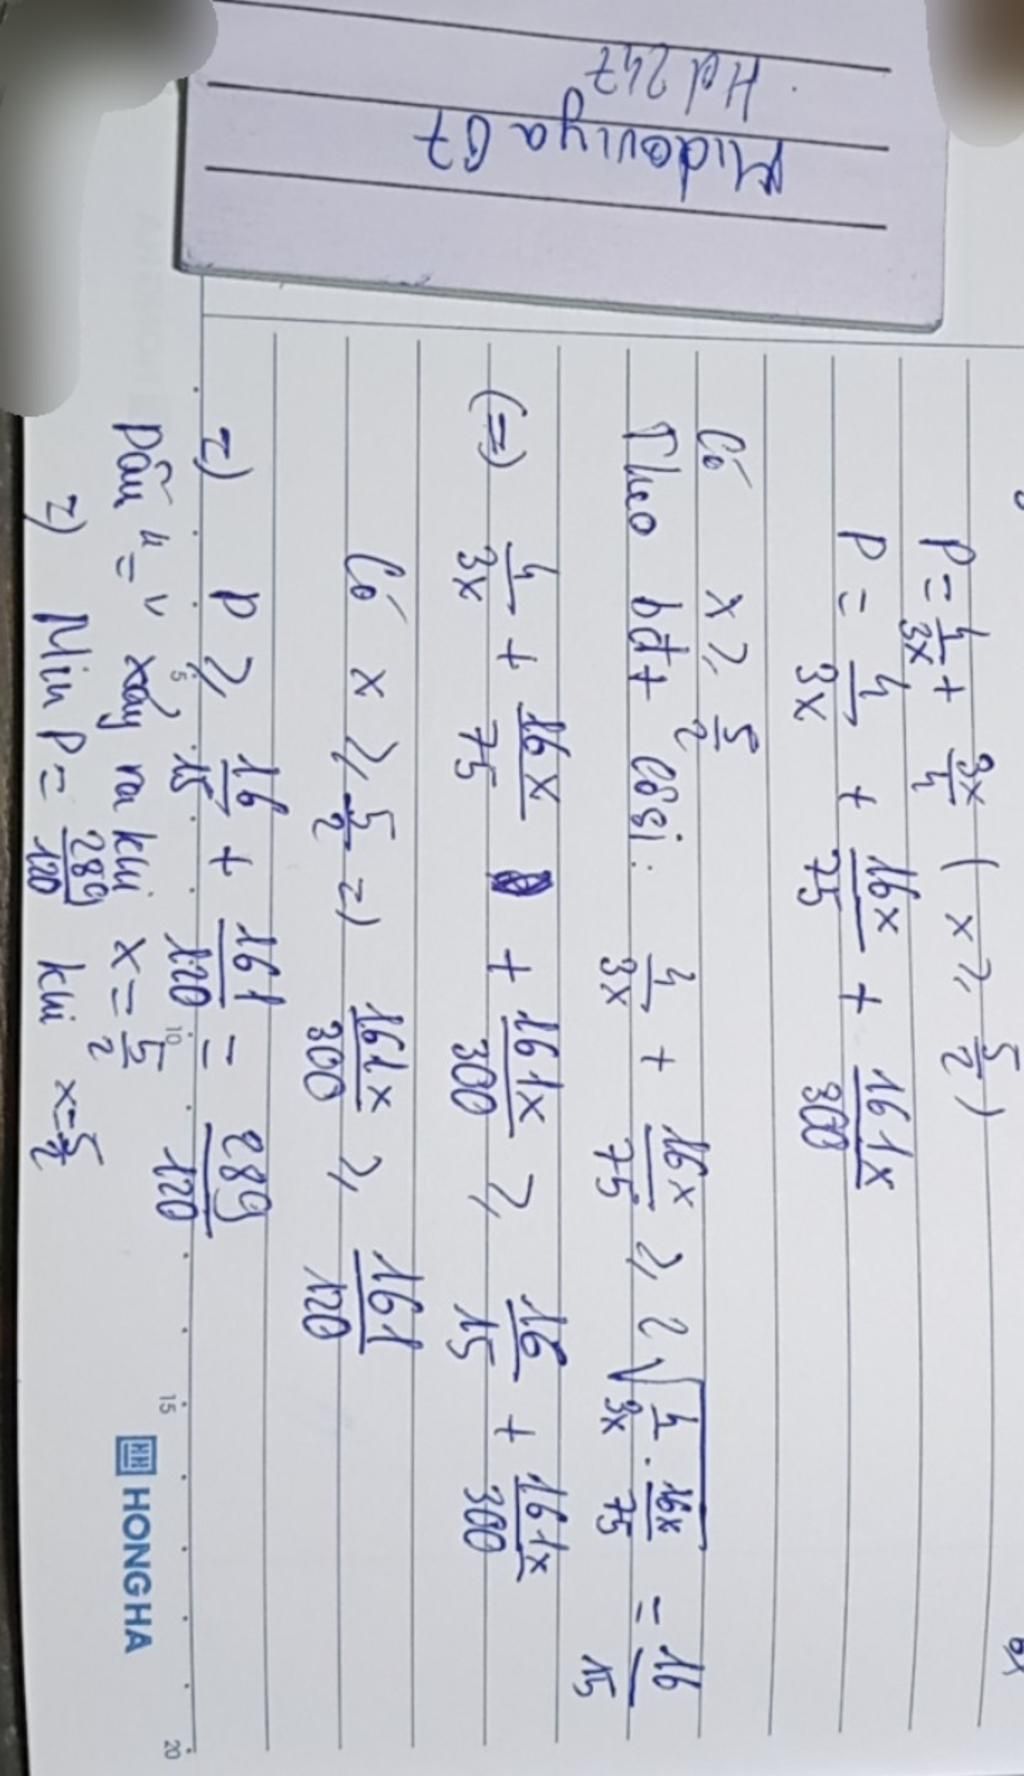 Hd 247
Midoviya 07
P = 4/3x + 3x/4 ( x ≥ 5/2 )
P = 4/3x + 16x/75 + 161x/300
Có x ≥ 5/2
Theo bđt Côsi: 4/3x + 16x/75 ≥ 2√(4/3x . 16x/75) = 16/15
(=) 4/3x + 16x/75 + 161x/300 ≥ 16/15 + 161x/300
Có x ≥ 5/2 =) 161x/300 ≥ 161/120
=) P ≥ 16/15 + 161/120 = 289/120
Dấu "=" xảy ra khi x = 5/2
=) Min P = 289/120 khi x = 5/2
5 10 15 20
HONG HA